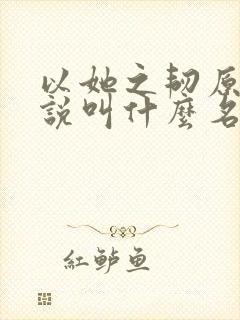 以她之韧原
說叫什麼名
紅鲈鱼